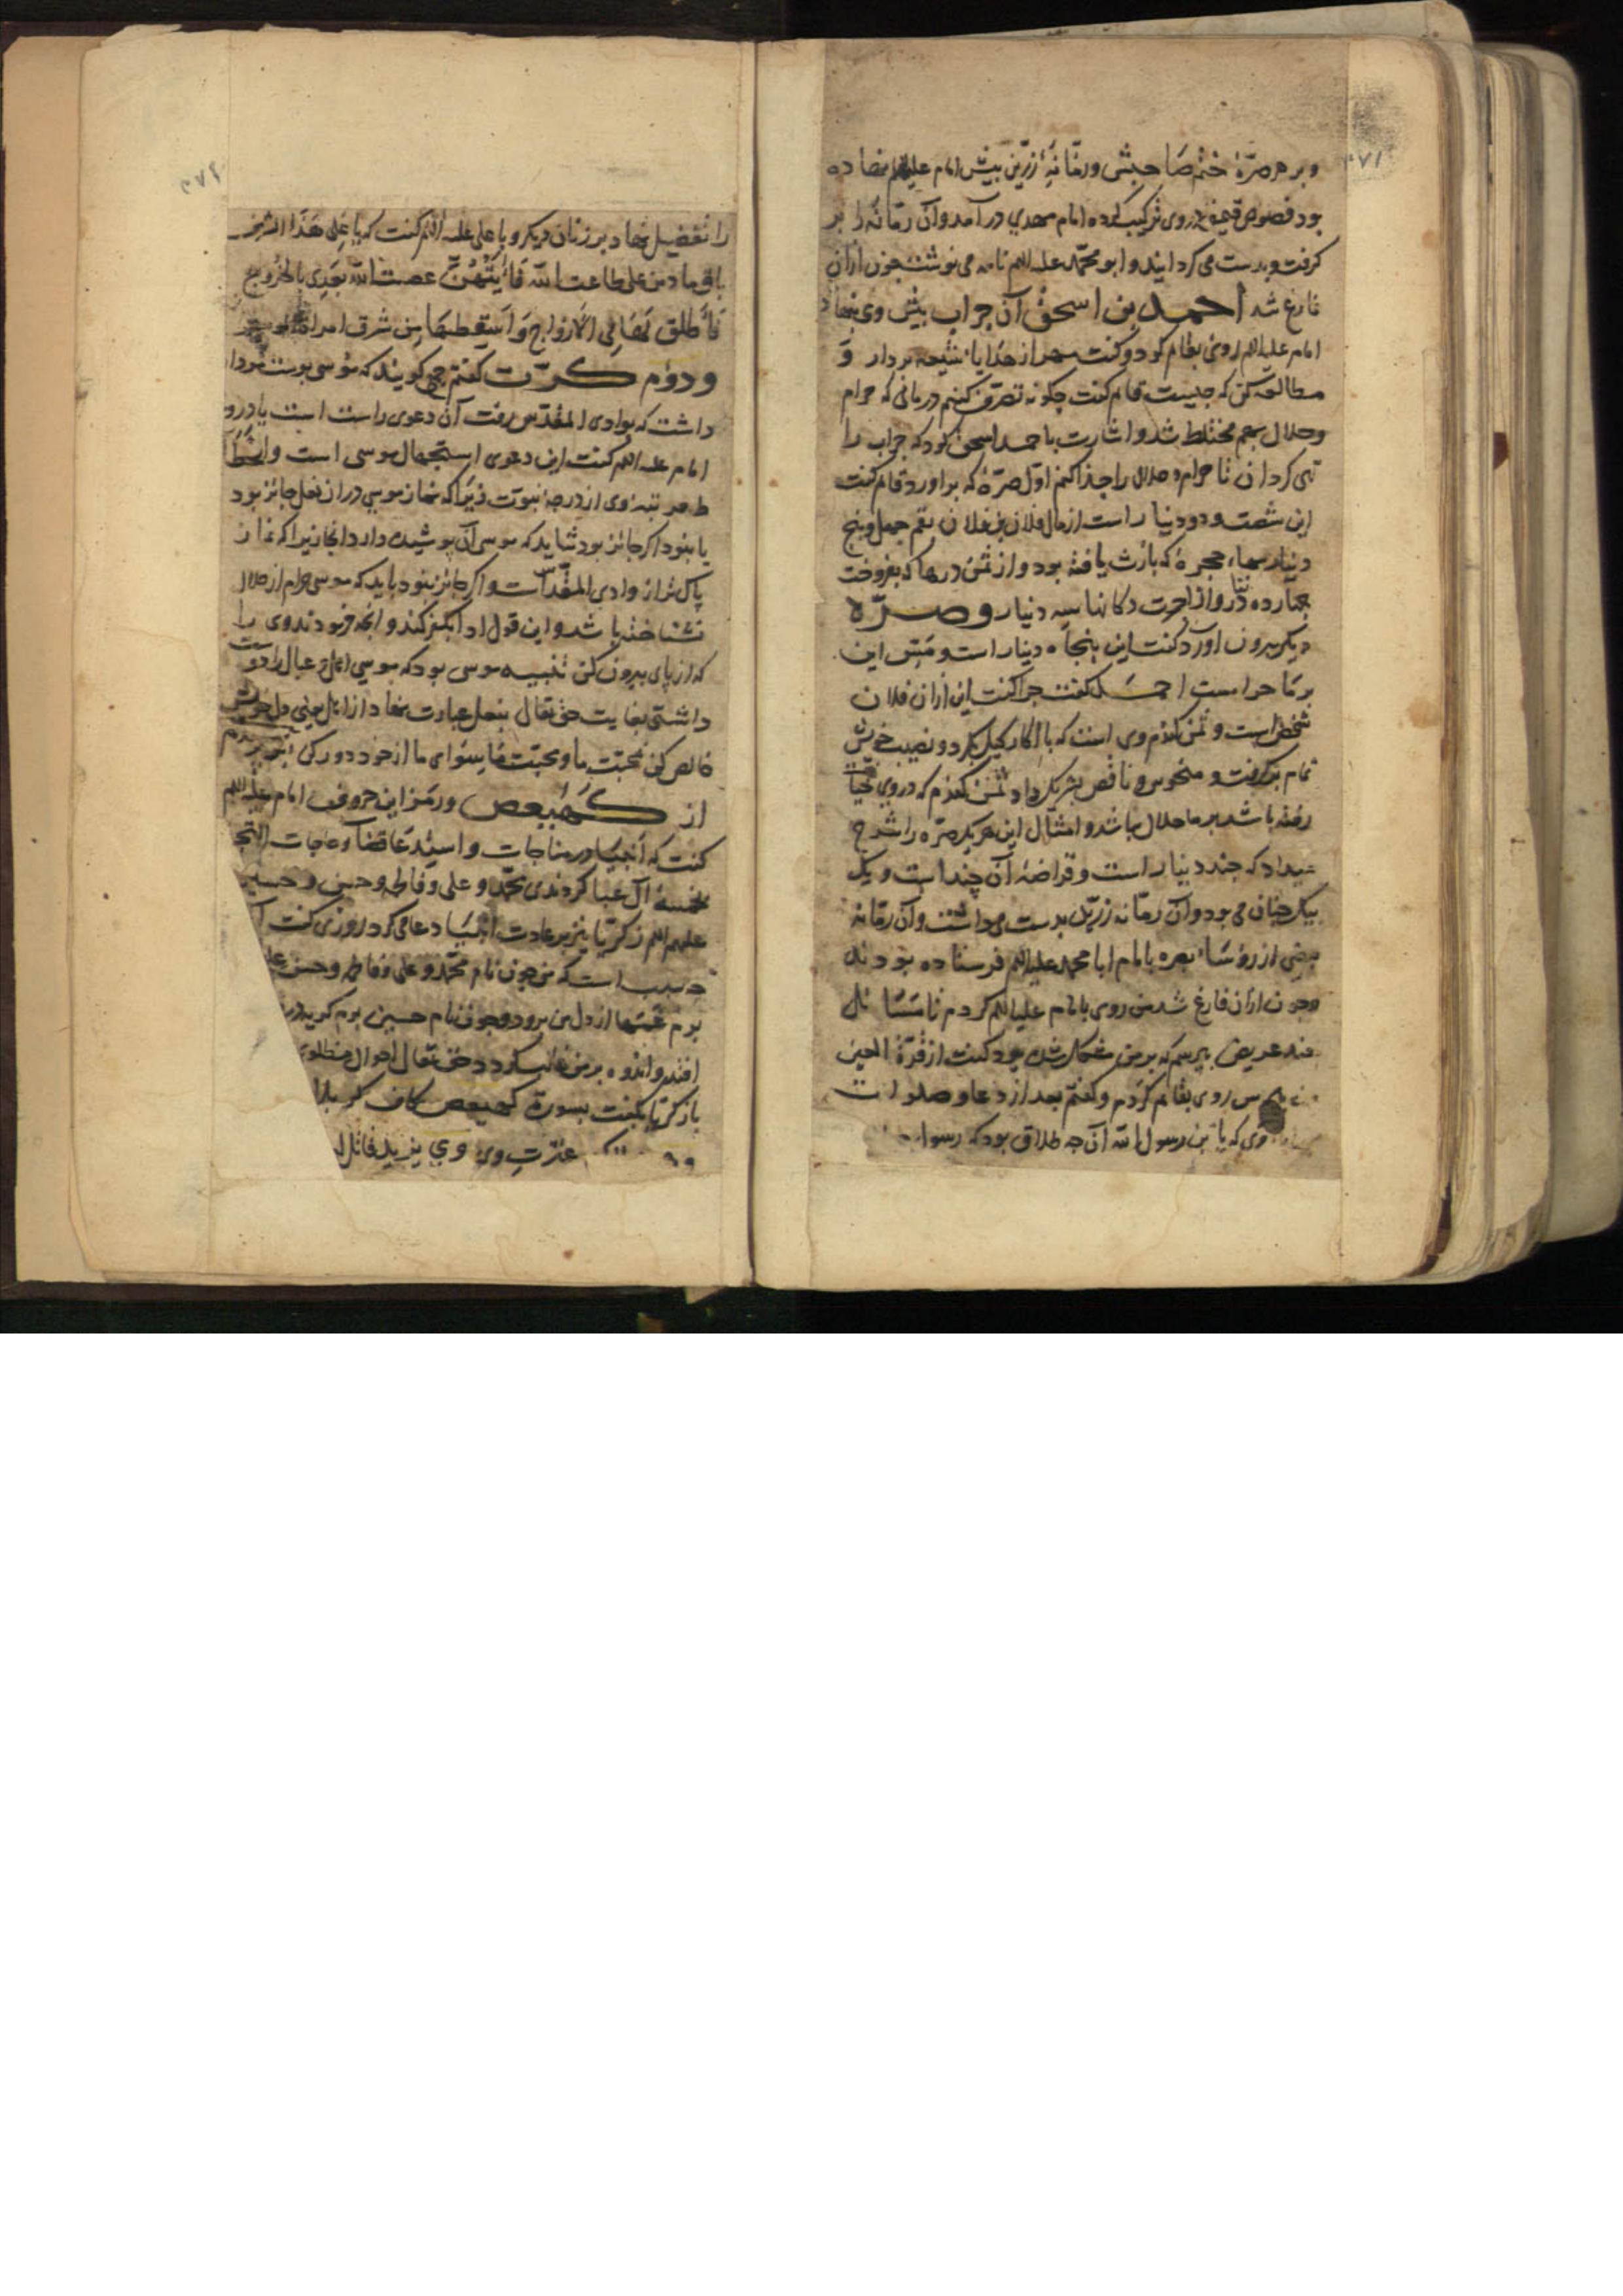 وبر هر صرّهٔ ختم صاحبش ورمّانهٔ زرّین پیش امام علیه السلم نهاده
بود فصوص قیمتی در وی ترکیب کرده امام مهدی درآمد وآن رمّانه را بر
کرفت وبدست می کردانید وابو محمّد علیه السلم نامه می نوشت چون ازان
فارغ شد احمد بن اسحق آن جراب پیش وی نهاد
امام علیه السلم روی بقایم کرد و کفت مهر از هدایا شیعه بردار و
مطالعه کن که چیست قایم کفت چکونه تصرف کنیم در مالی که حرام
وحلال بهم مختلط شد واشارت باحمد اسحق کرد که جراب را
تهی کردان تا حرام و حلال را جدا کنم اوّل صرّهٔ که براورد قایم کفت
این شصت ودو دینار است از مال فلان بن فلان بقم چهل وپنج
دینار بهاء حجرهٔ که بارث یافته بود واز ثمن درمها که بفروخت
چهارده دینار واز اجرت دکانها سه دینار وصرّه
دیکر بیرون آورد کفت این پنجاه دینار است ومسّ این
بر ما حرامست احمد کفت چرا کفت این ازان فلان
شخص است وثمن کندم وی است که با اکار کیل کرد و نصیب خویش
تمام برکرفت و منحوس وناقص بشریک داد ثمن کندم که در وی خیانت
رفته باشد بر ما حلال نباشد وامثال این هر یک صرّه را شرح
میداد که چند دینار است وقراضهٔ آن چند است و یک
بیک چنان می بود وآن رمّانه زرّین بدست می داشت وآن رمّانه
بعضی از رؤساء بصره بامام ابا محمد علیه السلم فرستاده بودند
وچون ازان فارغ شد من روی بامام علیه السلم کردم تا مسائل
چند عریض بپرسم که بر من مشکل شده بود کفت از قرّة العین
پرس روی بقایم کردم وکفتم بعد از دعا وصلوات
وی که یا بن رسول الله آن چه طلاق بود که رسول
را تفضیل نهاد بر زنان دیکر و با علی علیه السلم کفت که یا علی هذا الشرف
باق ما دمن علی طاعت الله فأیّتهنّ عصت الله بعدی بالخروج
فأطلق لها فی الازواج وأسقطها من شرف امهات المؤمنین
ودوم کرّت کفتم می کویند که موسی پوست مردار
داشت که بوادی المقدّس رفت آن دعوی راست است یا دروغ
امام علیه السلم کفت این دعوی استجهال موسی است وانحطاط
مرتبه وی از درجهٔ نبوّت زیرا که نماز موسی در ان نعل جائز بود
یا نبود اکر جائز بود شاید که موسی آن پوشیده دارد آنجا زیرا که نماز
پاک تر از وادی المقدّس است واکر جائز نبود باید که موسی حرام از حلال
نشناخته باشد واین قول ادا بکفر کند وانچه فرمودند وی را
که از پای بیرون کن تنبیه موسی بود که موسی اهل و عیال را دوست
داشتی بغایت حق تعالی بنعل عبارت نهاد از اهل یعنی دل خویش
خالص کن بمحبّت ما ومحبّت ما سوای ما از خود دور کن پرسیدم
از کهیعص ورمز این حروف امام علیه السلم
کفت که انبیا در مناجات واستدعا قضاء حاجات التجا
بخمسهٔ آل عبا کردندی محمّد و علی و فاطمه وحسن وحسین
علیهم السلم زکریّا نیز بر عادت انبیا دعا می کرد روزی کفت
چه سبب است که من چون نام محمّد وعلی وفاطمه وحسن علیهم
برم غمها از دل من برود وچون نام حسین برم کریه
افتد واندوه بر من غالب کردد حق تعالی احوال مظلومی
باز کریّا بکفت بسورة کهیعص کاف کربلا
عترت وی وی یزید قاتل